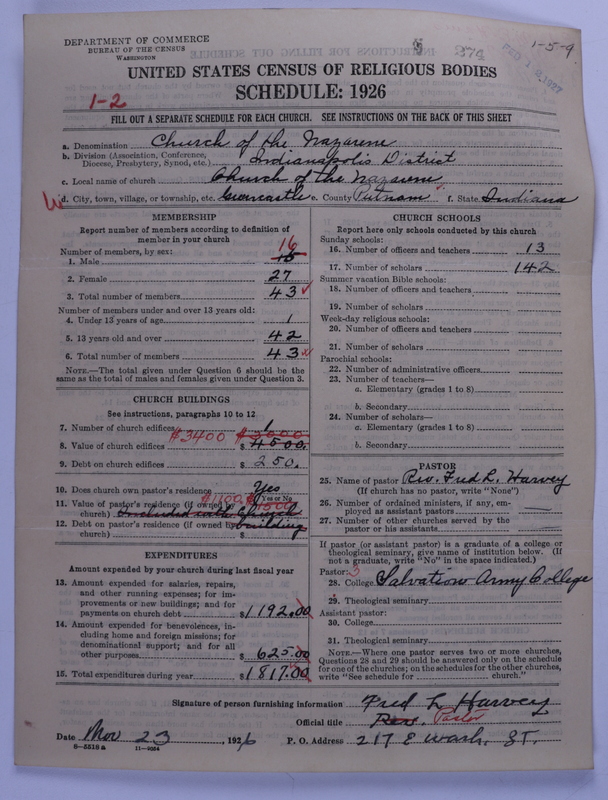 DEPARTMENT OF COMMERCE
BUREAU OF THE CENSUS
WASHINGTON
274
1-5-9
UNITED STATES CENSUS OF RELIGIOUS BODIES
SCHEDULE: 1926
1-2
FILL OUT A SEPARATE SCHEDULE FOR EACH CHURCH. SEE INSTRUCTIONS ON THE BACK OF THIS SHEET
a. Denomination Church of the Nazarene
b. Division (Association, Conference, Diocese, Presbytery, Synod, etc.) Indianapolis District
c. Local name of church Church of the Nazarene
d. City, town, village, or township, etc. Greencastle e. County Putnam f. State Indiana
MEMBERSHIP
Report number of members according to definition of
member in your church
Number of members, by sex: 16
1. Male
2. Female 27
3. Total number of members 43
Number of members under and over 13 years old:
4. Under 13 years of age 1
5. 13 years old and over 42
6. Total number of members 43
NOTE.—The total given under Question 6 should be the
same as the total of males and females given under Question 3.
CHURCH BUILDINGS
See instructions, paragraphs 10 to 12
7. Number of church edifices 1
$3400 $3000
8. Value of church edifices $ 4500.
9. Debt on church edifices $ 250.
10. Does church own pastor's residence Yes
Yes or No
11. Value of pastor's residence (if owned by $1100 $1500
church) Included with church
12. Debt on pastor's residence (if owned by building
church) $
EXPENDITURES
Amount expended by your church during last fiscal year
13. Amount expended for salaries, repairs,
and other running expenses; for im-
provements or new buildings; and for
payments on church debt $1192.00
14. Amount expended for benevolences, in-
cluding home and foreign missions; for
denominational support; and for all
other purposes $ 625.00
15. Total expenditures during year $1817.00
CHURCH SCHOOLS
Report here only schools conducted by this church
Sunday schools:
16. Number of officers and teachers 13
17. Number of scholars 142
Summer vacation Bible schools:
18. Number of officers and teachers
19. Number of scholars
Week-day religious schools:
20. Number of officers and teachers
21. Number of scholars
Parochial schools:
22. Number of administrative officers
23. Number of teachers—
a. Elementary (grades 1 to 8)
b. Secondary
24. Number of scholars—
a. Elementary (grades 1 to 8)
b. Secondary
PASTOR
25. Name of pastor Rev. Fred L. Harvey
(If church has no pastor, write "None")
26. Number of ordained ministers, if any, em-
ployed as assistant pastors
27. Number of other churches served by the
pastor or his assistants
If pastor (or assistant pastor) is a graduate of a college or
theological seminary, give name of institution below. (If
not a graduate, write "No" in the space indicated.)
Pastor: 3
28. College Salvation Army College
29. Theological seminary
Assistant pastor:
30. College
31. Theological seminary
NOTE.—Where one pastor serves two or more churches,
Questions 28 and 29 should be answered only on the schedule
for one of the churches; on the schedules for the other churches,
write "See schedule for church."
Signature of person furnishing information Fred L Harvey
Official title Rev. Pastor
Date Nov 23, 1926 P. O. Address 217 E Wash. ST.
8-5518 a 11-9054